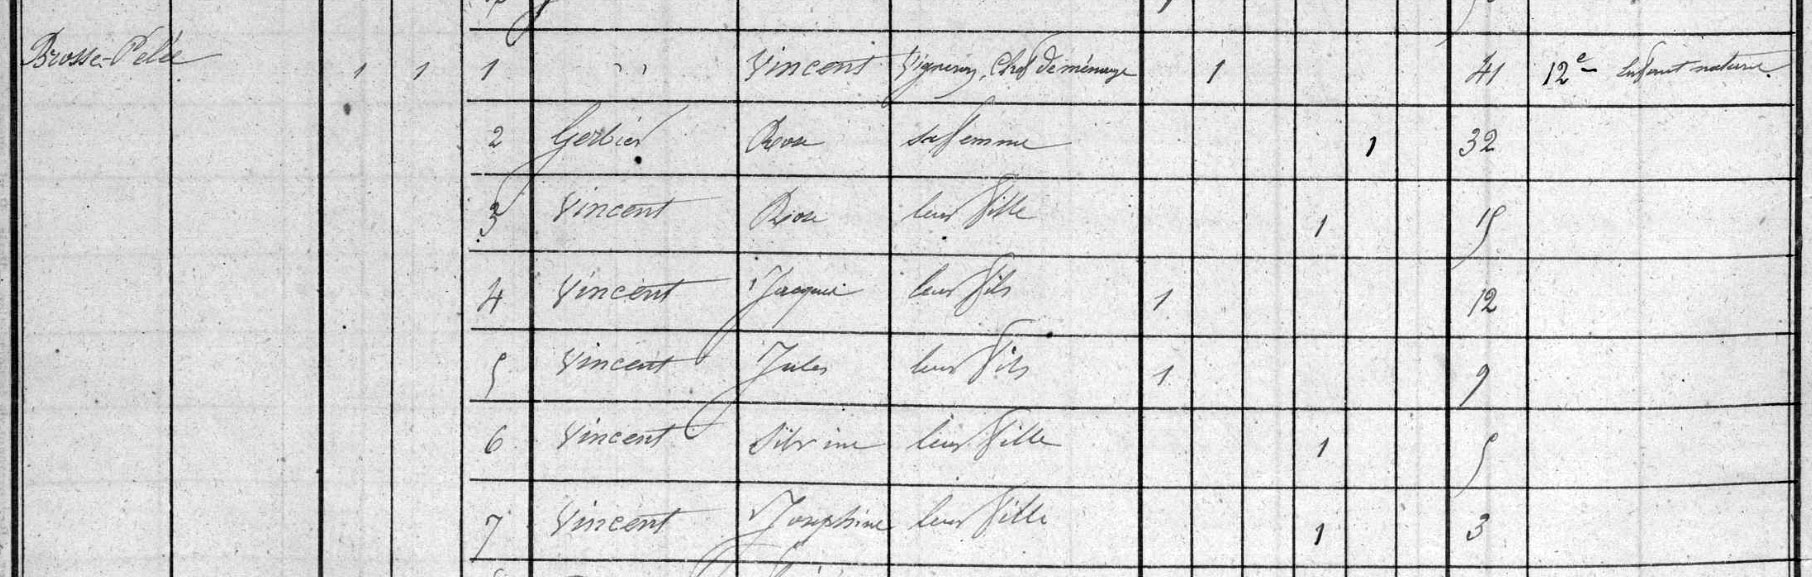 Brosse-Pelée 1 1 1 " Vincent Vigneron, Chef de ménage 1 41 12e - Enfant naturel.
2 Gerbier Rose sa femme 1 32
3 Vincent Rose leur fille 1 15
4 Vincent Jacques leur fils 1 12
5 Vincent Jules leur fils 1 9
6 Vincent Silvine leur fille 1 5
7 Vincent Joséphine leur fille 1 3